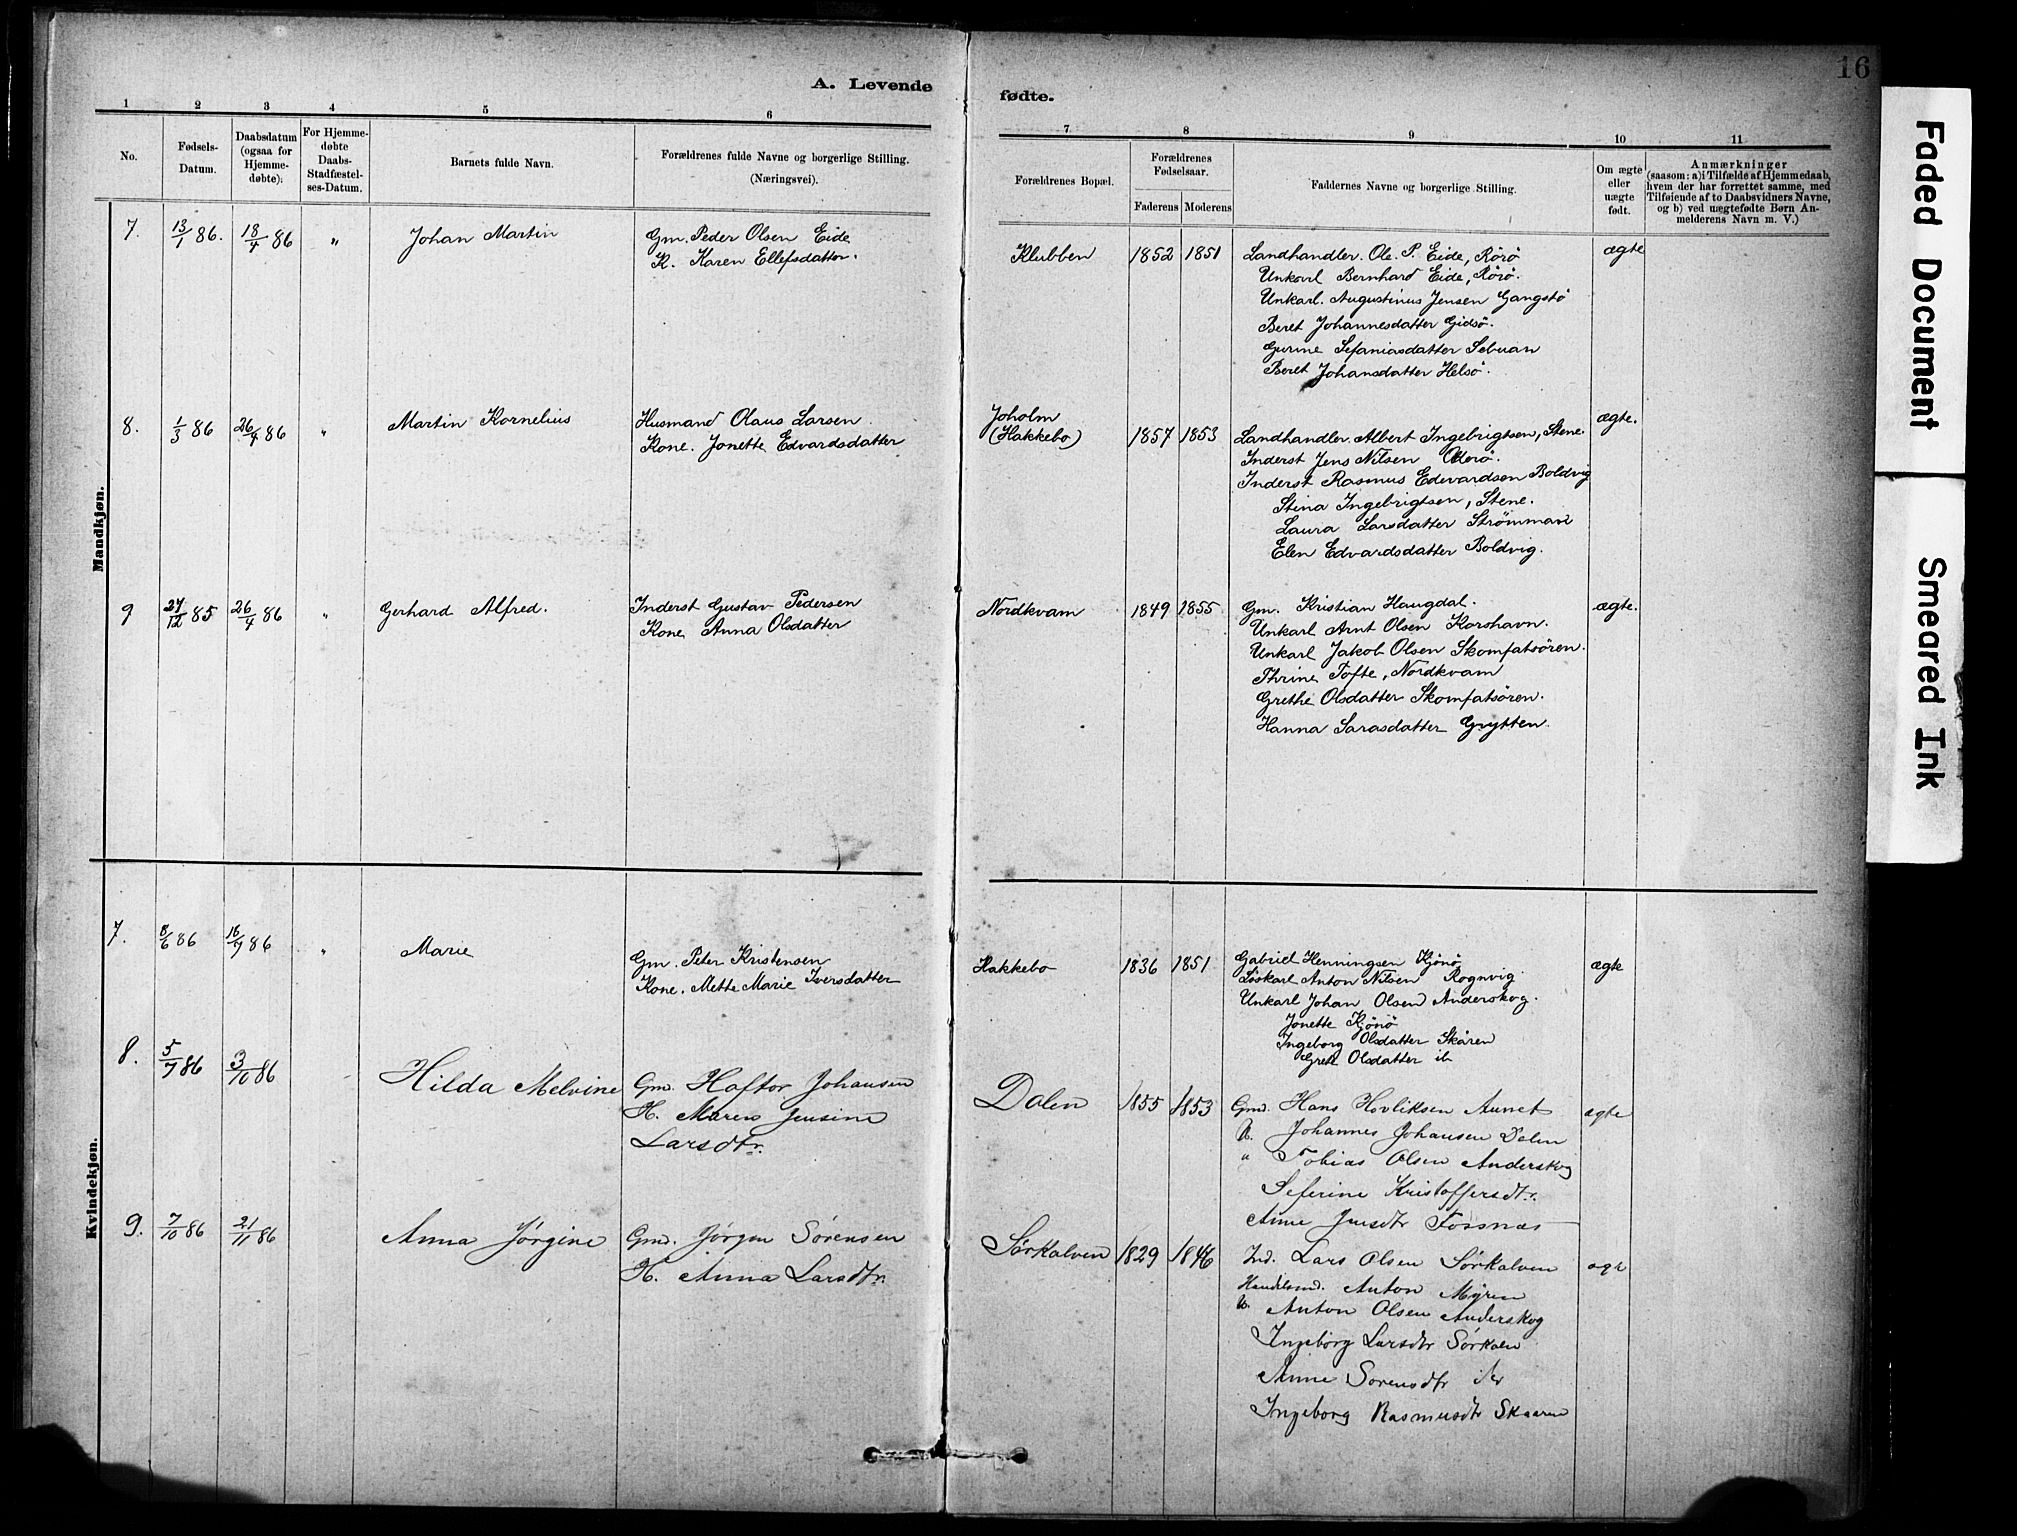 16
A. Levende fødte.
1 2 3 4 5 6 7 8 9 10 11
No.
Fødsels-
Datum.
Daabsdatum
(ogsaa for
Hjemme-
døbte).
For Hjemme-
døbte
Daabs-
Stadfæstel-
ses-Datum.
Barnets fulde Navn.
Forældrenes fulde Navne og borgerlige Stilling.
(Næringsvei).
Forældrenes Bopæl.
Forældrenes
Fødselsaar.
Faderens Moderens
Faddernes Navne og borgerlige Stilling.
Om ægte
eller
uægte
født.
Anmærkninger
(saasom: a) i Tilfælde af Hjemmedaab,
hvem der har forrettet samme, med
Tilføiende af to Daabsvidners Navne,
og b) ved uægtefødte Børn An-
melderens Navn m. V.)
Mandkjøn.
7. 13/1 86. 18/4 86 " Johan Martin
Gm. Peder Olsen Eide
K. Karen Ellefsdatter.
Klubben 1852 1851
Landhandler. Ole. P. Eide, Rörö
Unkarl Bernhard Eide, Rörö.
Unkarl. Augustinus Jensen Gangstö
Beret Johannesdatter Gidsö.
Gurine Sefaniasdatter Sebuan
Beret Johansdatter Helsö.
ægte
8. 1/3 86 26/4 86 " Martin Kornelius
Husmand Olaus Larsen
Kone. Jonette Edvardsdatter
Joholm
(Hakkebo) 1857 1853
Landhandler. Albert Ingebrigtsen, Stene.
Inderst Jens Nilsen
Inderst Rasmus Edevardsen Boldvig
Stina Ingebrigtsen, Stene.
Laura Larsdatter Strömman
Elen Edvardsdatter Boldvig.
ægte.
9 27/12 85 26/4 86 " Gerhard Alfred.
Inderst Gustav Pedersen
Kone Anna Olsdatter
Nordkvam 1849 1855
Gm. Kristian Haugdal.
Unkarl Arnt Olsen Korshavn.
Unkarl Jakob Olsen Skomfatsören.
Thrine Tofte, Nordkvam
Grethe Olsdatter Skomfatsören.
Hanna Sarasdatter Grytten.
ægte.
Kvindekjøn.
7. 8/6 86 16/7 86 " Marie
Gm. Peter Kristensen
Kone. Mette Marie Iversdatter
Hakkebo 1836 1851
Gabriel Henningsen Kjönö
Löskarl Anton Nilsen Rognvig
Unkarl Johan Olsen Anderskog.
Jonette Kjönö
Ingeborg Olsdatter Skåren
Grete Olsdatter ib
ægte
8. 5/7 86 3/10 86 Hilda Melvine
Gm. Haftor Johansen
H. Maren Jensine
Larsdtr.
Dalen 1855 1853
Gmd. Hans Hovliksen Aunet
U. Johannes Johansen Dalen
" Tobias Olsen Anderskog
Seferine Kristoffersdtr.
Anne Jensdtr Fossnas
ægte
9. 7/10 86 21/11 86 Anna Jørgine
Gmd. Jørgen Sørensen
H. Anna Larsdtr.
Sørkalven 1829 1846
Ind. Lars Olsen Sørkalven
Handelsmd. Anton Myren
U. Anton Olsen Anderskog
Ingeborg Larsdtr Sørkalv
Anne Sorensdtr
Ingeborg Rasmusdtr Skaaren
ægte
Faded Document
Smeared Ink